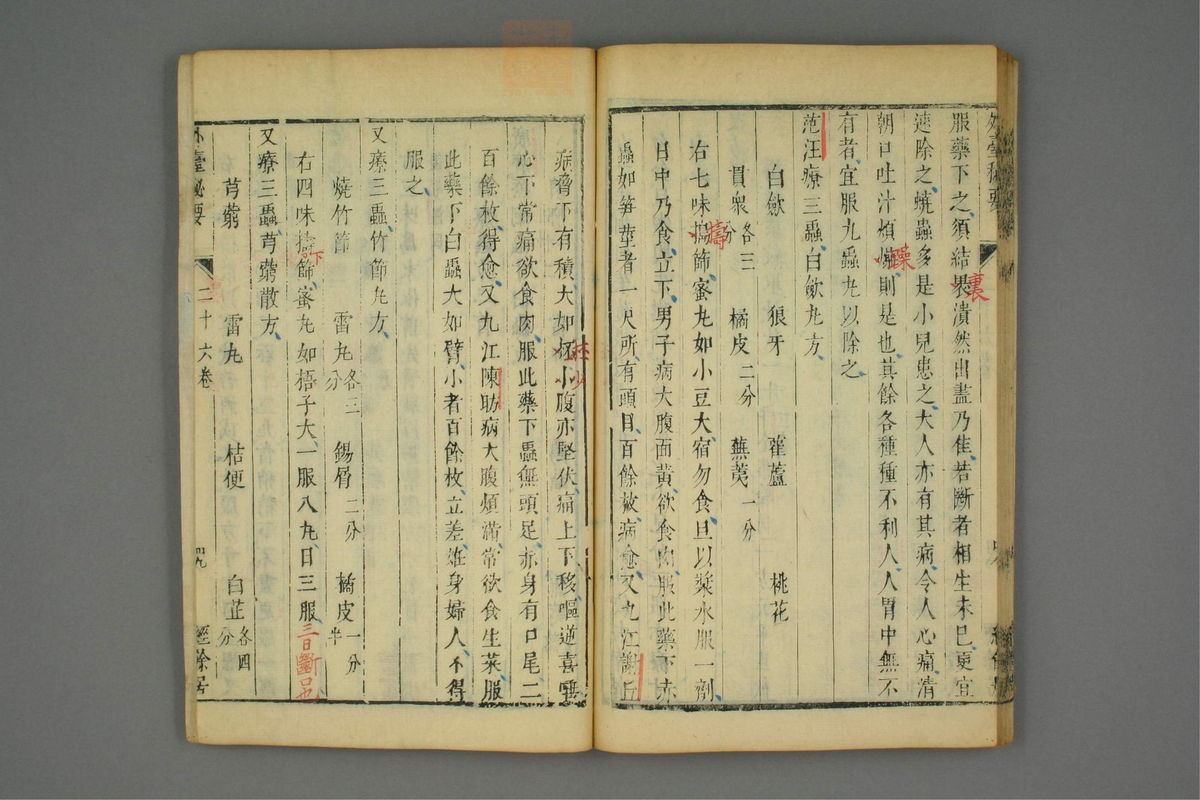 服藥下之須結裹潰然出盡乃佳若斷者相生未已更宜
裏
速除之蟯蟲多是小兒患之大人亦有其病令人心痛清
朝口吐汁煩躁則是也其餘各種種不利人人胃中無不
躁
有者宜服九蟲丸以除之
范汪療三蟲白斂丸方
白斂 狼牙 雚蘆 桃花
貫衆各三分 橘皮二分 蕪荑一分
右七味擣篩蜜丸如小豆大宿勿食旦以漿水服一劑
擣
日中乃食立下男子病大腹面黃欲食肉服此藥下赤
蟲如笋莖者一尺所有頭目百餘枚病愈又九江謝丘
病脅下有積大如杯小腹亦堅伏痛上下移嘔逆喜唾
心下常痛欲食肉服此藥下蟲無頭足赤身有口尾二
百餘枚得愈又九江陳助病大腹煩滿常欲食生菜服
此藥下白蟲大如臂小者百餘枚立差雄身婦人不得
服之
又療三蟲竹節丸方
燒竹節 雷丸各三分 錫屑二分 橘皮一分半
右四味擣篩蜜丸如梧子大一服八丸日三服
下
三日斷口也
又療三蟲芎藭散方
芎藭 雷丸 桔梗 白芷各四分
外臺秘要 二十六卷 四九 經餘居